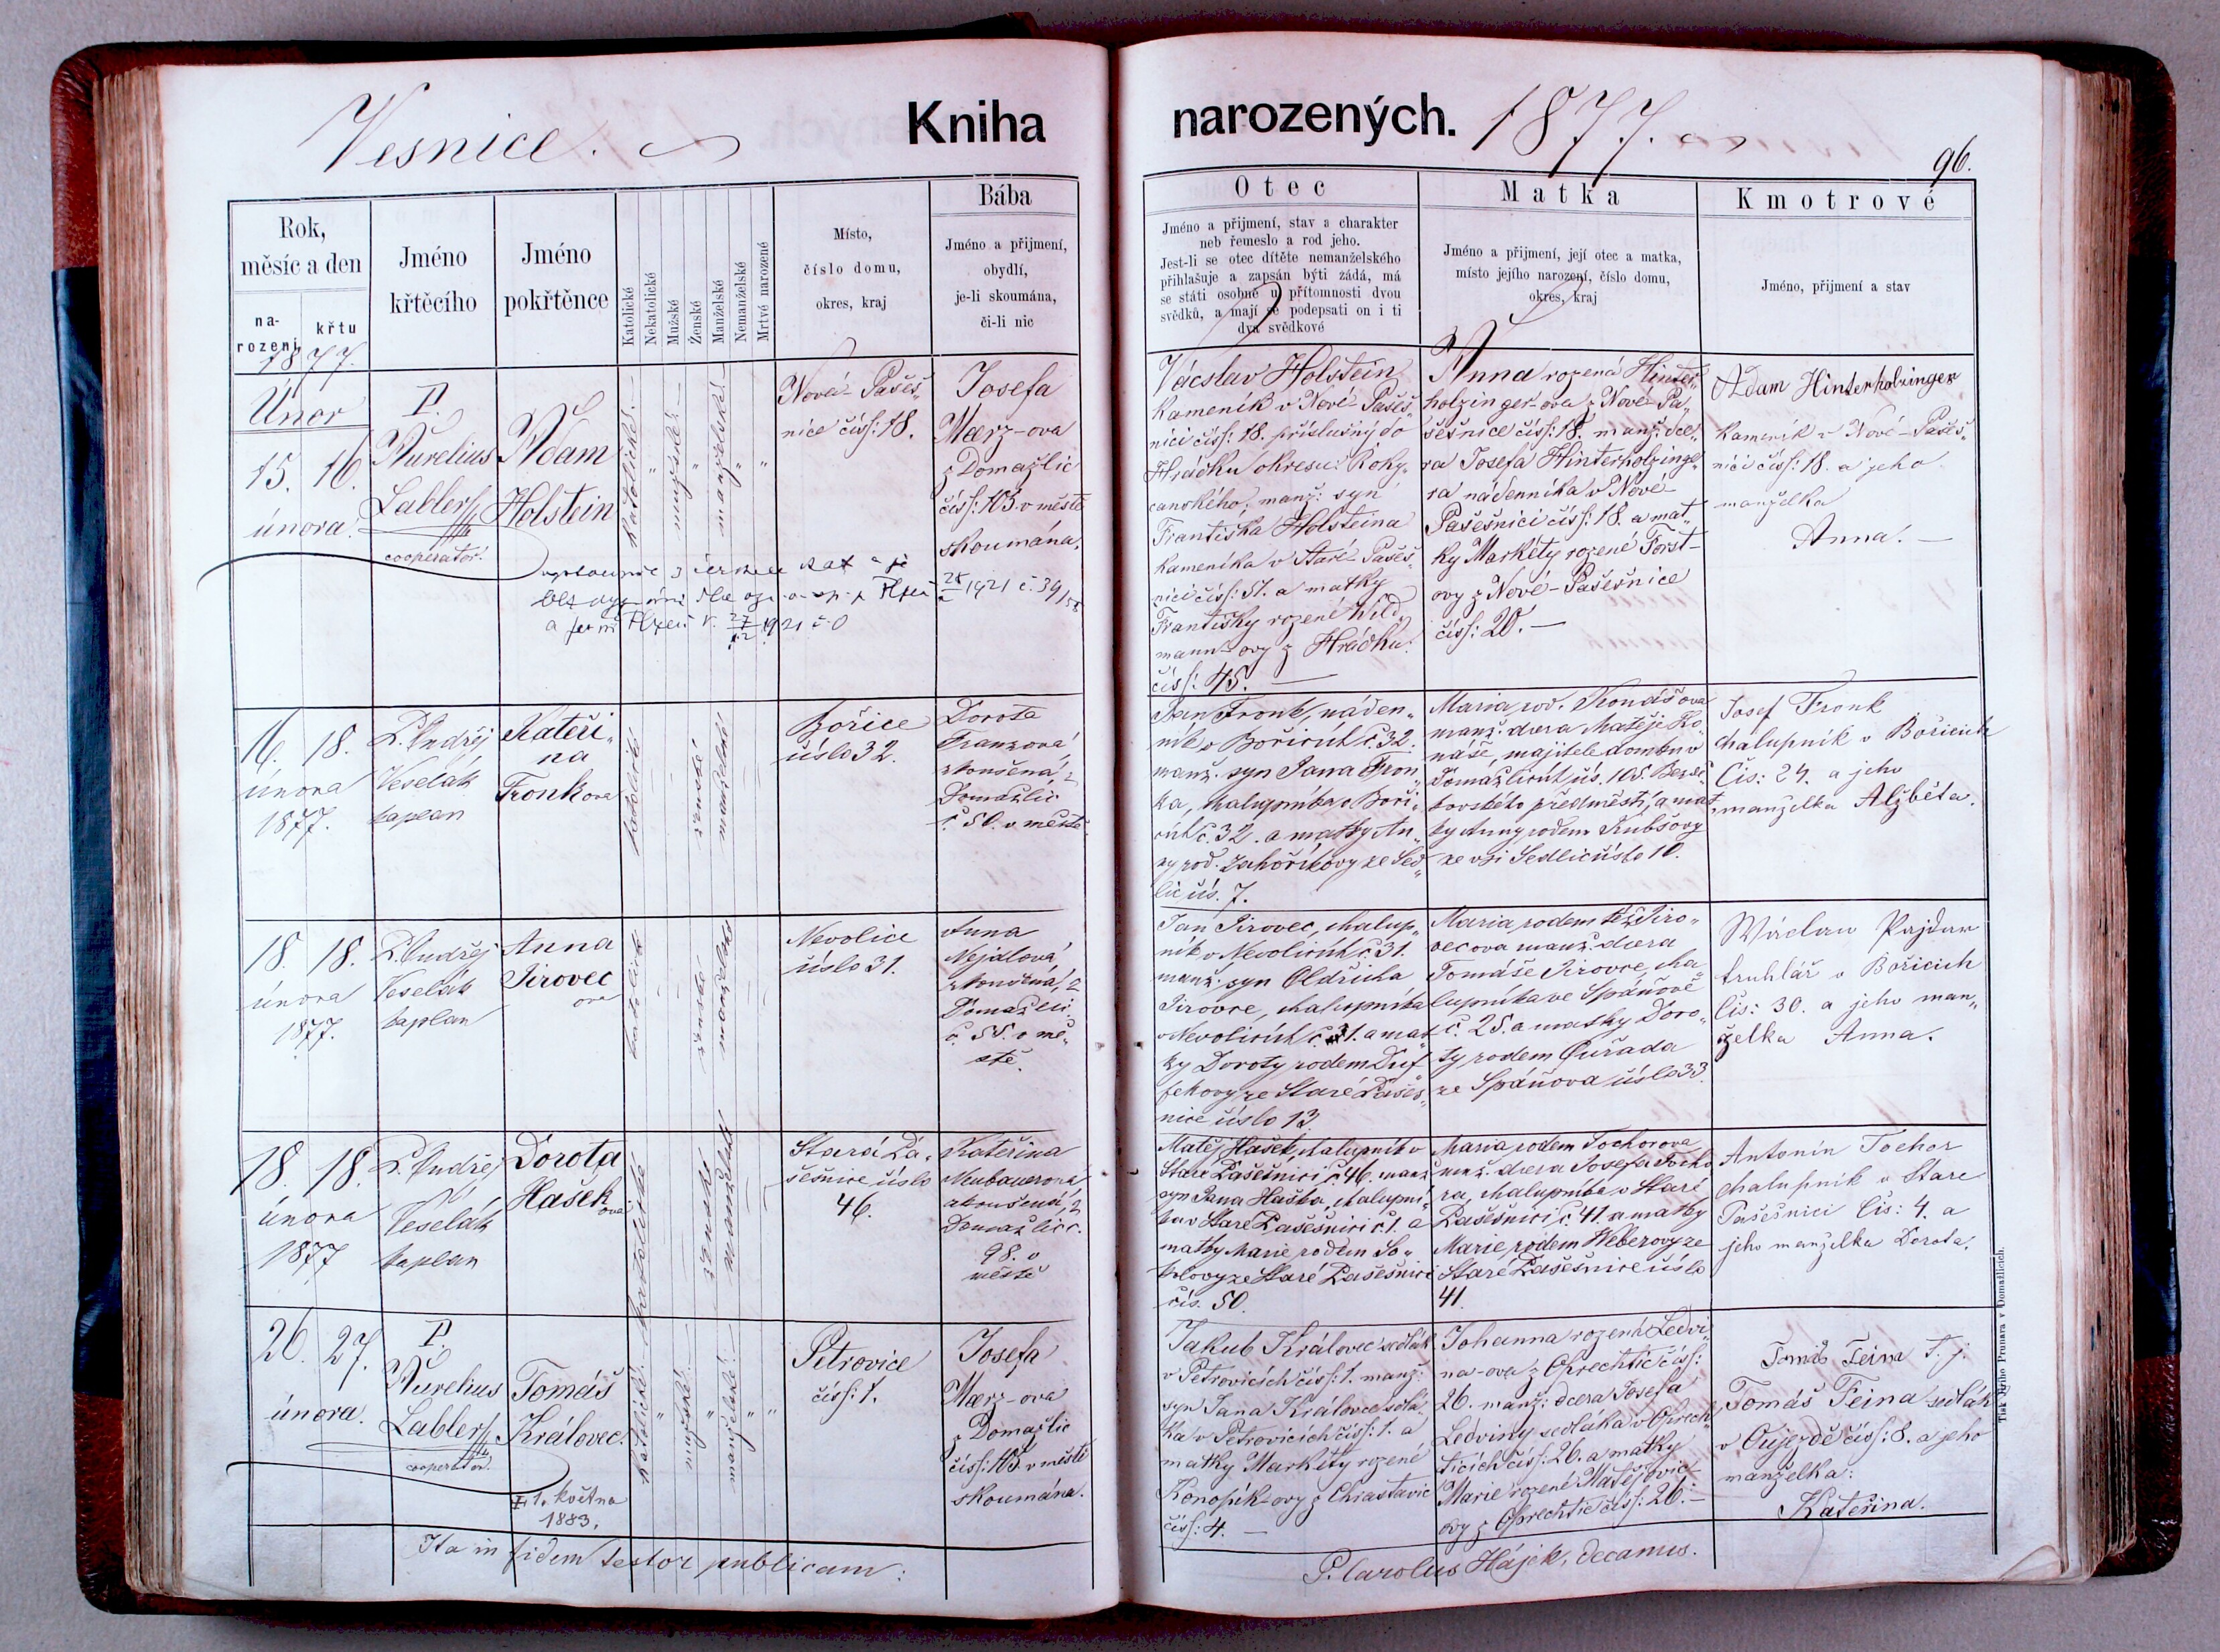 Vesnice.
Kniha
narozených. 1877.
96.
Rok,
měsíc a den
na-
rození
křtu
Jméno
křtěcího
Jméno
pokřtěnce
Katolické
Nekatolické
Mužské
Ženské
Manželské
Nemanželské
Mrtvé narozené
Místo,
číslo domu,
okres, kraj
Bába
Jméno a přijmení,
obydlí,
je-li skoumána,
či-li nic
Otec
Jméno a přijmení, stav a charakter
neb řemeslo a rod jeho.
Jest-li se otec dítěte nemanželského
přihlašuje a zapsán býti žádá, má
se státi osobně u přítomnosti dvou
svědků, a mají se podepsati on i ti
dva svědkové
Matka
Jméno a přijmení, její otec a matka,
místo jejího narození, číslo domu,
okres, kraj
Kmotrové
Jméno, přijmení a stav
1877.
Únor
15. 16.
února.
P.
Aurelius
Labler
cooperator.
Adam
Holstein
katolické
mužské
manželské
Nová-Pašeš„
nice čísl: 18.
Josefa
Maerz-ova
z Domažlic
čísl: 103 v městě
skoumána.
Václav Holstein
kameník v Nové-Pašeš„
nici čísl: 18. příslušný do
Hrádku okresu: Roky„
canského, manž: syn
Františka Holsteina
kameníka v Staré Pašeš„
nici čísl: 51. a matky
Františky rozené Wild„
mann-ovy z Hrádku.
čísl: 45. —
Anna rozená Hinter„
holzinger-ova z Nové-Pa„
šešnice čísl: 18. manž: dce„
ra Josefa Hinterholzinge„
ra nádenníka v Nové-
Pašešnici čísl: 18. a mat„
ky Markéty rozené Forst-
ovy z Nové-Pašešnice
čísl: 20. —
Adam Hinterholzinger
kameník v Nové-Pašeš„
nici čísl: 18. a jeho
manželka
Anna. —
16. 18.
února
1877.
P. Ondřej
Veselák
kaplan
Kateři„
na
Fronkova
katolické
ženské
manželské
Bořice
číslo 32.
Dorota
Franzová
zkoušená, z
Domažlic
č. 50. v městě
Jan Fronk, náden„
ník v Bořicích č. 32.
manž. syn Jana Fron„
ka, chalupníka v Boři„
cích č. 32. a matky An„
ny rod. Záhoříkovy ze Sed„
lic čís. 7.
Maria rod. Konášova
manž. dcera Matěje Ko„
náše, majitele domku v
Domažlicích čís. 105. Bezdě„
kovského předměstí, a mat„
ky Anny, rodem Kubšovy
ze vsi Sedlic číslo 10.
Josef Fronk
chalupník v Bořicích
Čis: 24. a jeho
manželka Alžběta.
18. 18.
února
1877.
P. Ondřej
Veselák
kaplan
Anna
Jirovec
ova
katolické
ženské
manželské
Nevolice
číslo 31.
Anna
Nejdlová,
zkoušená, z
Domažlic
č. 55. v mě„
stě.
Jan Jirovec, chalup„
ník v Nevolicích č. 31.
manž. syn Oldřicha
Jirovce, chalupníka
v Nevolicích č. 31. a mat„
ky Doroty rodem Duf„
fekovy ze Staré Pašeš„
nice číslo 13.
Maria rodem též Jiro„
vecova manž. dcera
Tomáše Jirovce, cha„
lupníka ve Spáňově
č. 25. a matky Doro„
ty rodem Čuřada
ze Spáňova číslo 33.
Wáclav Pajdar
truhlář v Bořicich
Čis: 30. a jeho man„
želka Anna.
18. 18.
února
1877
P. Ondřej
Veselák
kaplan
Dorota
Hašek
ova
katolické
ženské
manželské
Stará Pa„
šešnice číslo
46.
Kateřina
Neubauerová
zkoušená, z
Domažlic č.
98. v
městě
Matěj Hašek, chalupník v
Staré Pašešnici č. 46. manž.
syn Jana Haška, chalupní„
ka v Staré Pašešnici č. 1. a
matky Marie rodem So„
kolovy ze Staré Pašešnice
čís. 50.
Maria rodem Tochorova
manž. dcera Josefa Tocho„
ra, chalupníka v Staré
Pašešnici č. 41. a matky
Marie, rodem Weberovy ze
Staré Pašešnice číslo
41.
Antonin Tochor
chalupník v Stare
Pašešnici Čis: 4. a
jeho manželka Dorota.
26. 27.
února.
P.
Aurelius
Labler
cooperator.
Tomáš
Královec.
1. května
1883.
katolické
mužské
manželské
Petrovice
čísl: 1.
Josefa
Maerz-ova
z Domažlic
čísl: 103. v městě
skoumána.
Jakub Královec sedlák
v Petrovicích čísl: 1. manž:
syn Jana Královce sedlá„
ka v Petrovicích čísl: 1. a
matky Markéty rozené
Konopík-ovy z Chrastavic
čísl: 4. —
Johanna rozená Ledvi„
na-ova z Oprechtic čísl:
26. manž: dcera Josefa
Ledviny sedláka v Oprech„
ticích čísl: 26. a matky
Marie rozené Matějovic-
ovy z Oprechtic čísl: 26. —
Tomáš Feina
Tomáš Feina sedlák
v Oujezdě čísl: 8. a jeho
manželka:
Kateřina.
Ita in fidem testor publicam:
P. Carolus Hájek, decanus.
Tisk Jiřího Prunara v Domažlicích.